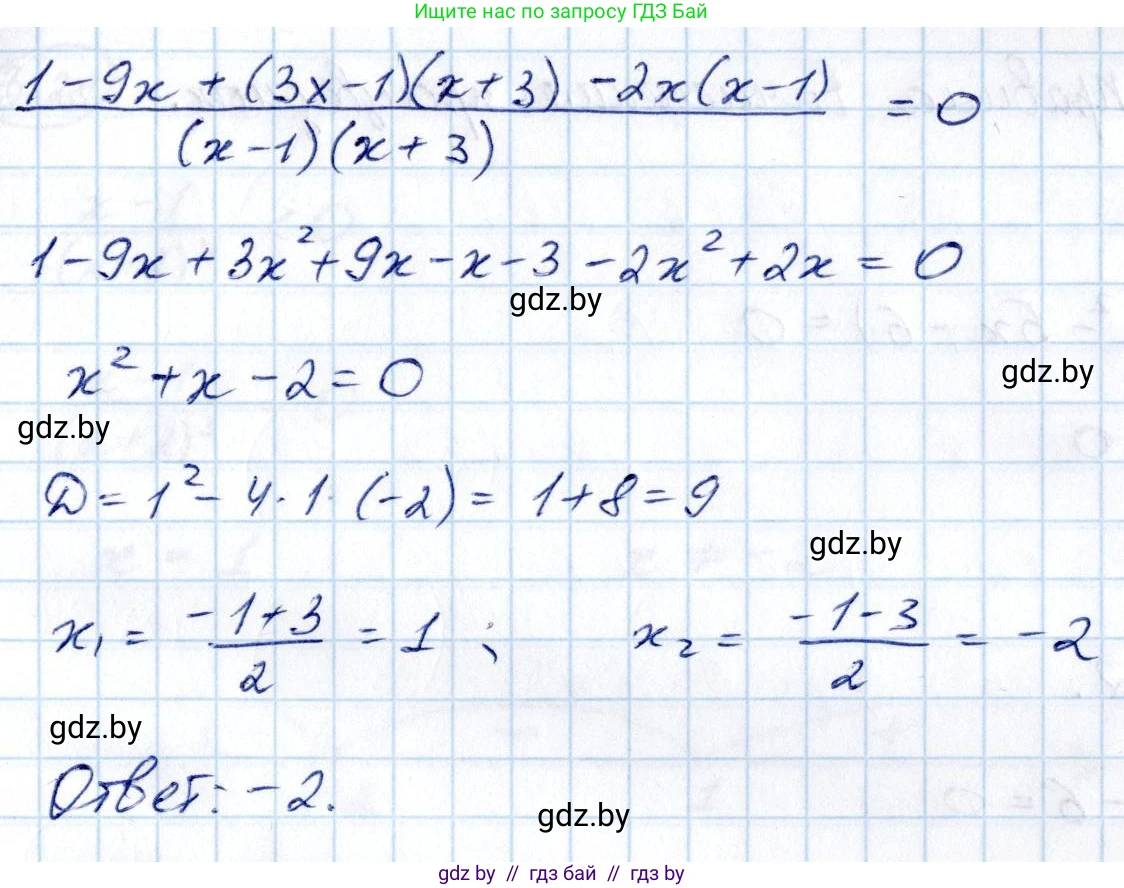 Ищите нас по запросу ГДЗ Бай
1 - 9x + (3x-1)(x+3) - 2x(x-1)
= 0
(x-1)(x+3)
1 - 9x + 3x² + 9x - x - 3 - 2x² + 2x = 0
gdz.by
x² + x - 2 = 0
gdz.by
gdz.by
D = 1² - 4·1·(-2) = 1 + 8 = 9
gdz.by
x₁ = (-1+3)/2 = 1 ; x₂ = (-1-3)/2 = -2
gdz.by
Ответ: -2.
gdz.by
gdz by // гдз бай // гдз by